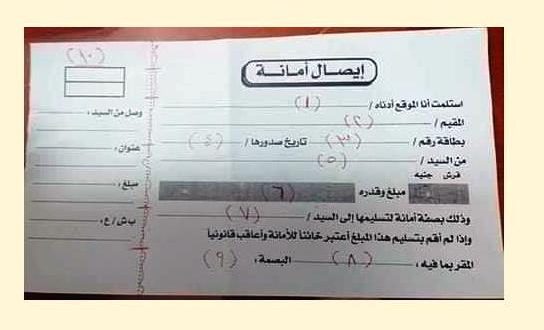 إيصال أمانة
استلمت أنا الموقع أدناه / (١)
المقيم / (٢)
بطاقة رقم / (٣) تاريخ صدورها / (٤)
من السيد / (٥)
قرش جنيه
مبلغ وقدره (٦)
وذلك بصفة أمانة لتسليمها إلى السيد / (٧)
وإذا لم أقم بتسليم هذا المبلغ أعتبر خائناً للأمانة وأعاقب قانونياً
المقر بما فيه، (٨) البصمة، (٩)
(١٠)
وصل من السيد،
عنوان،
مبلغ،
ب ش / ع،